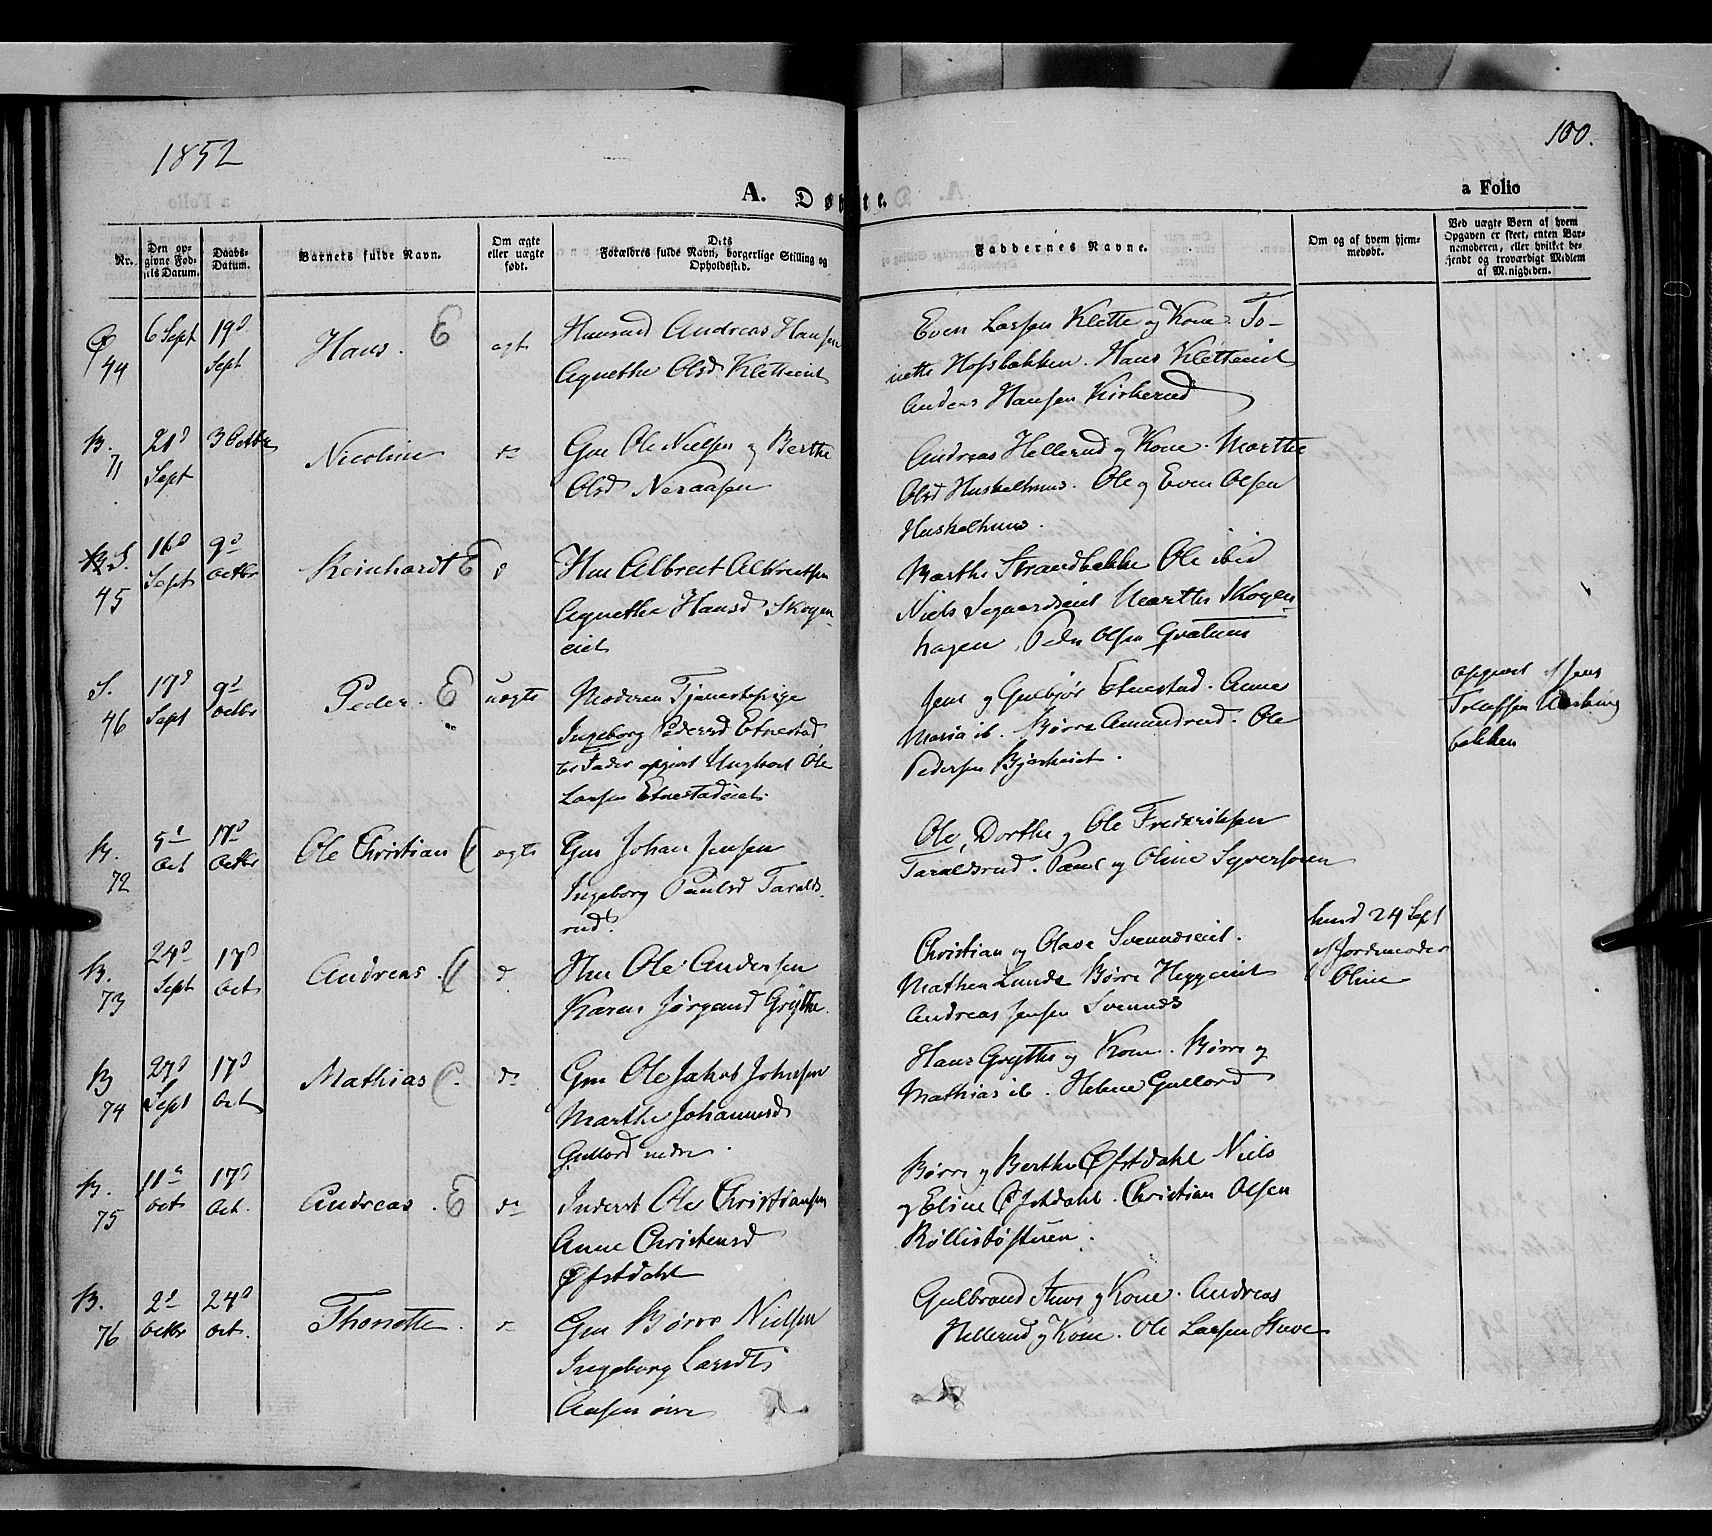 1852
100.
A. Døbte.
a Folio
Nr.
Den opgivne Fødsels Datum.
Daabs-Datum.
Barnets fulde Navn.
Om ægte eller uægte født.
Dets Forældres fulde Navn, borgerlige Stilling og Opholdssted.
Faddernes Navne.
Om og af hvem hjemmedøbt.
Ved uægte Børn af hvem Opgaven er skeet, enten Barnemoderen, eller hvilket bekjendt og troværdigt Medlem af Menigheden.
44
6 Sept
19d Sept
Hans. E
ægt
Huusmd Andreas Hansen
Agnethe Olsd Kletteeiet
Even Larsen Klette og Kone. To-
nette Hofsbakken. Hans Kletteeiet
Anders Hansen Kirkerud
B. 71
21d Sept
3 Octbr
Nicoline
do
Gm Ole Nielsen og Berthe
Olsd Neraasen
Andreas Hellerud og Kone. Marthe
Olsd Huskelhuus. Ole og Even Olsen
Huskelhuus.
S. 45
16d Sept
9d Octbr
Reinhardt E
d
Hm Albret Albretsen
Agnethe Hansd Skogen-
eiet
Marthe Strandbakke Ole ibid
Niels Segaardseiet Marthe Skogen
hagen, Peder Olsen
S. 46
17d Sept
9d Octbr
Peder. E
uægte
Moderen Tjenestepige
Ingeborg Pedersd Etnestad
Fader opgivet Ungkarl Ole
Larsen Etnestadeiet.
Jens og Gulbjør Etnestad. Anne
Maria ib. Børre Amundrud. Ole
Pedersen
opgivet af Jens
bakken
B. 72
5d Oct
17d Octbr
Ole Christian
ægte
Gm Johan Jensen
Ingeborg Paulsd Taralds-
rud.
Ole, Dorthe og Ole Frederiksen
Taraldsrud. Paul og Oline Syversøen
B. 73
24d Sept
17d Oct
Andreas.
d.
Hm Ole Andersen
Karen Jørgensd Grythe.
Christian og Olave Svenndseiet.
Mathea Lunde Børre Heggeeiet
Andreas Jensen
hmd 24 Sept
af Jordemoder
Oline
B 74
27d Sept
17d Oct
Mathias
do
Gm Ole Jakob Johnsen
Marthe Johannesd
Gullord nedre.
Hans Grythe og Kone. Børre og
Mathias ib. Helene Gullord
B. 75
11te Oct
17d Oct.
Andreas. E
do
Inderst Ole Christiansen
Anne Christensd
Øfstdahl
Børre og Berthe Øfstdahl Niels
og Eline Øfstdahl. Christian Olsen
B. 76
2d Octbr
24d Oct.
Thonette.
do
Gm Børre Nielsen
Ingeborg Larsdt
Aasen øvre
Gulbrand Stuve og Kone. Andreas
Hellerud og Kone. Ole Larsen Stuve